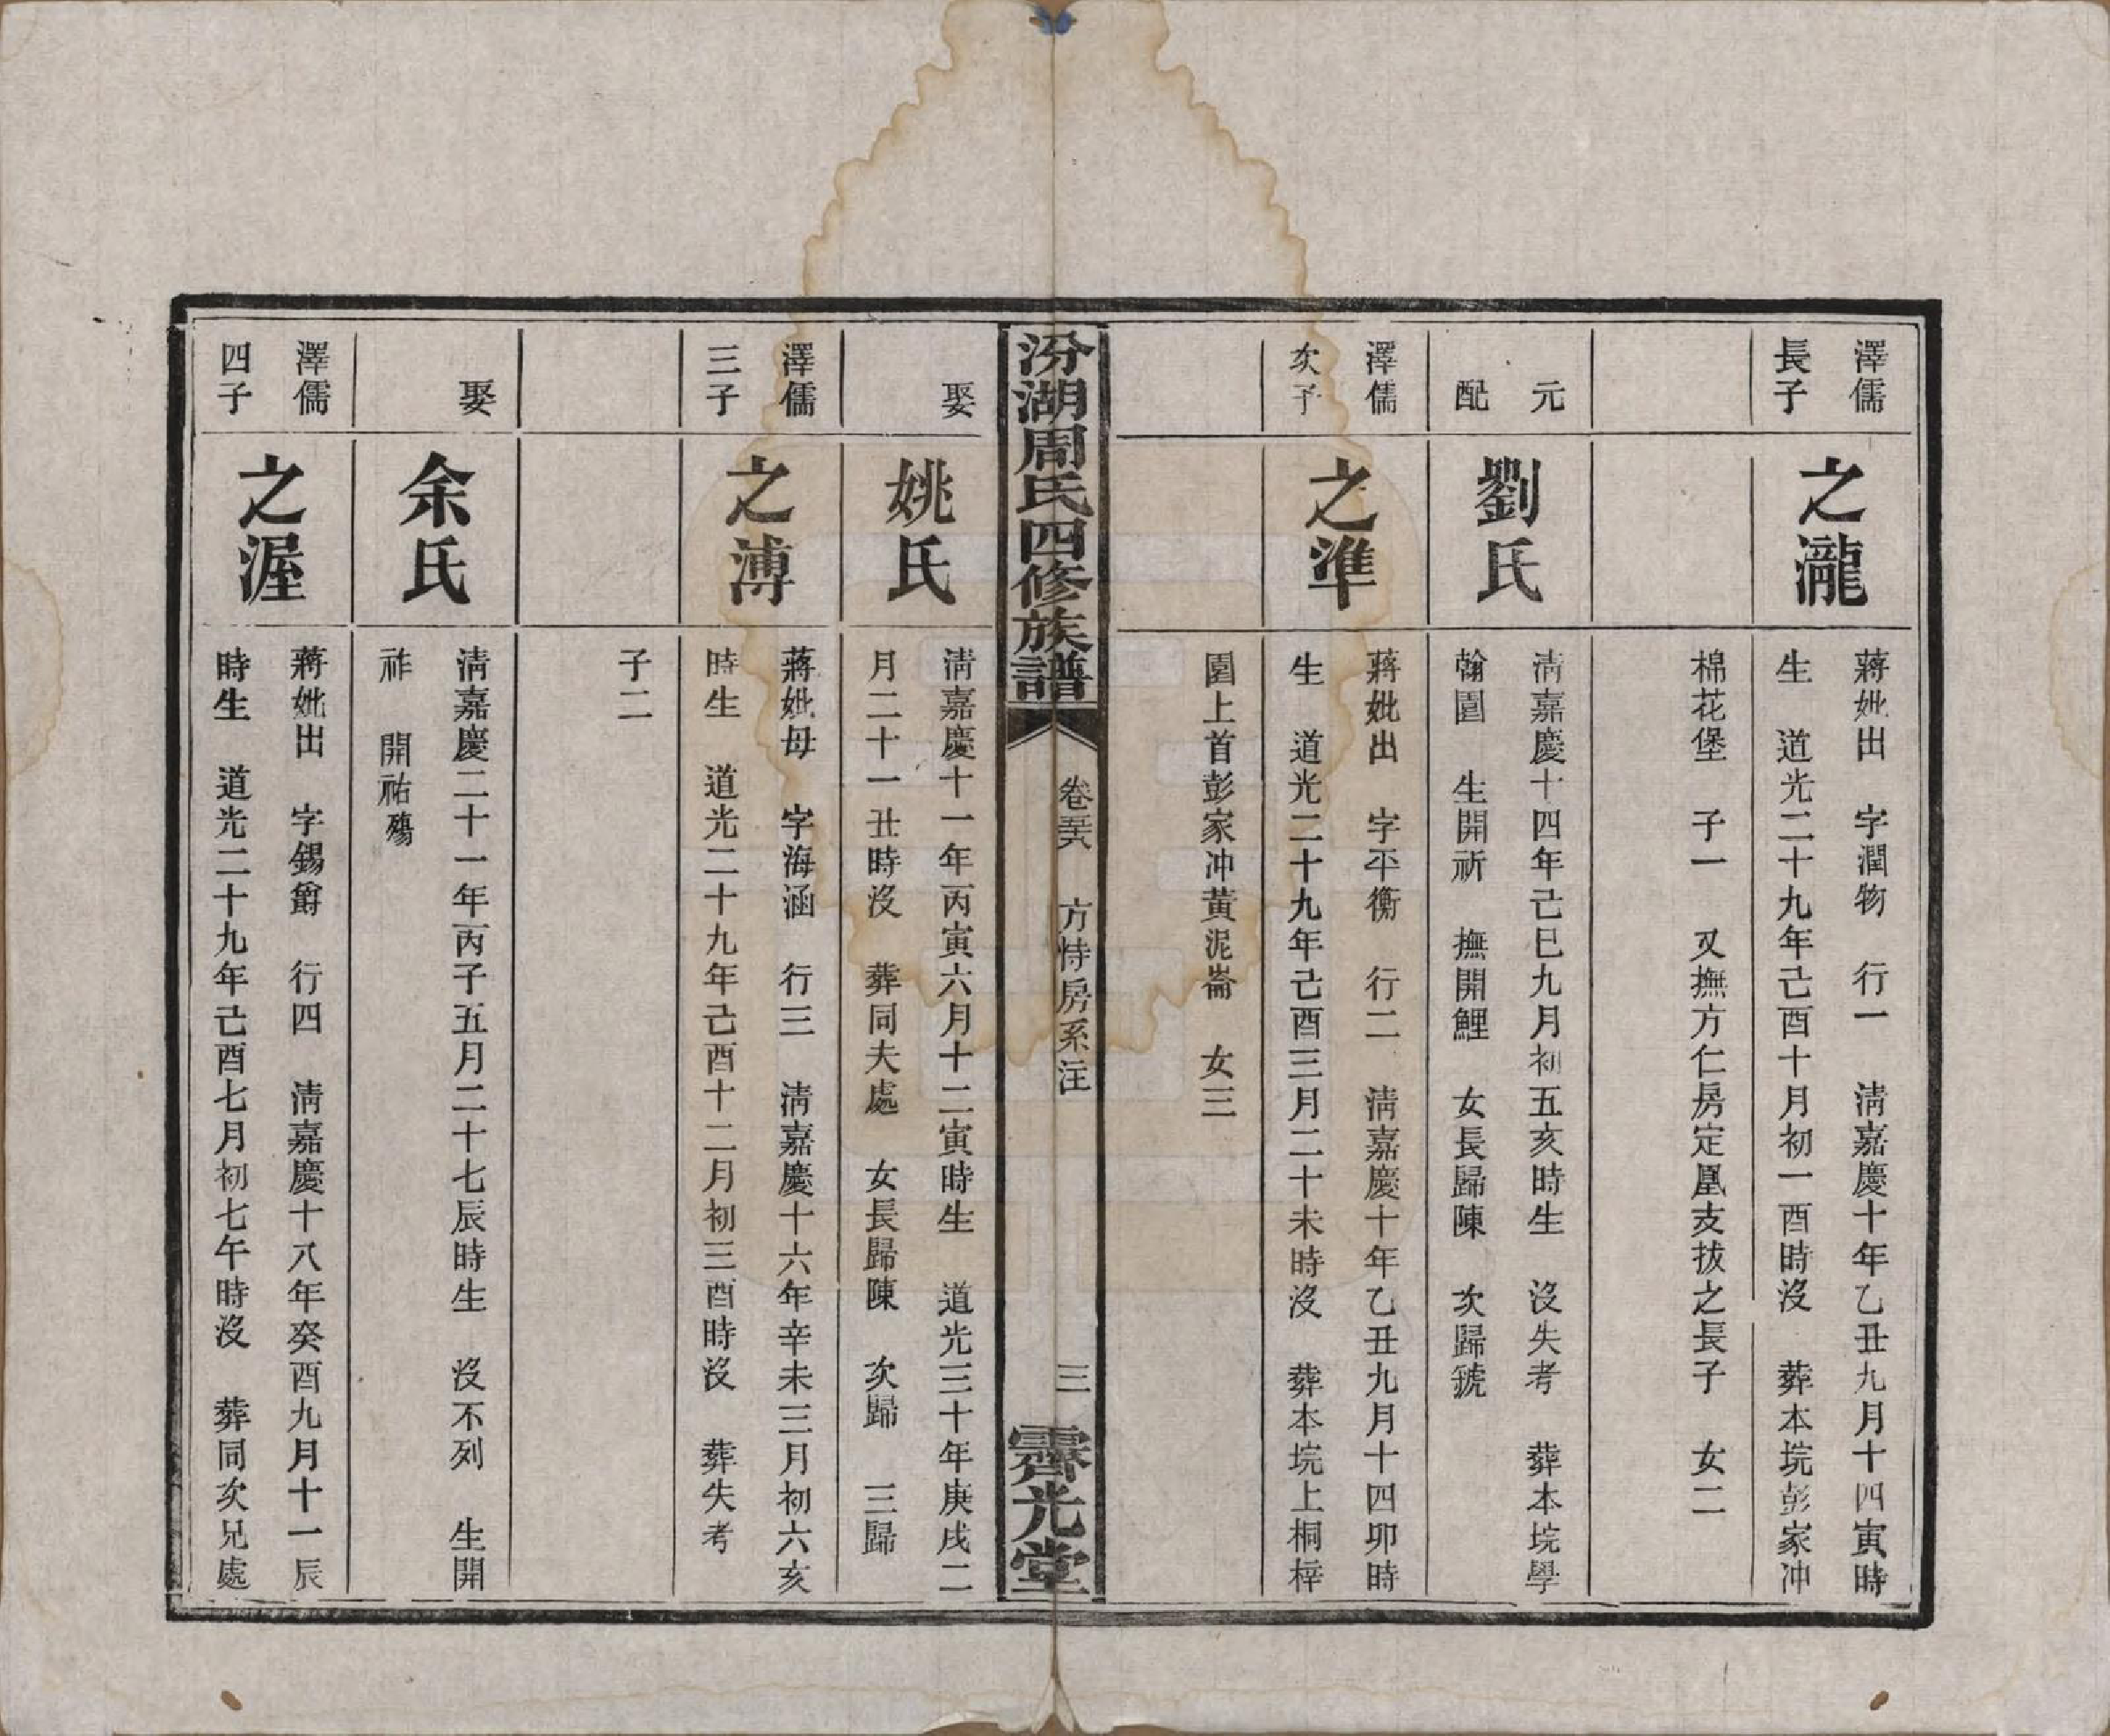 澤儒
長子
之瀧
蔣妣出　字潤物　行一　淸嘉慶十年乙丑九月十四寅時
生　道光二十九年己酉十月初一酉時沒　葬本垸彭家冲
棉花堡　子一　又撫方仁房定凰支拔之長子　女二
元
配
劉氏
淸嘉慶十四年己巳九月初五亥時生　沒失考　葬本垸學
翰園　生開祈　撫開鯉　女長歸陳　次歸虢
澤儒
次子
之準
蔣妣出　字平衡　行二　淸嘉慶十年乙丑九月十四卯時
生　道光二十九年己酉三月二十未時沒　葬本垸上桐梓
園上首彭家冲黃泥崙　女三
汾湖周氏四修族譜
卷
方恃房系注
三
霽光堂
娶
姚氏
淸嘉慶十一年丙寅六月十二寅時生　道光三十年庚戌二
月二十一丑時沒　葬同夫處　女長歸陳　次歸　三歸
澤儒
三子
之溥
蔣妣毋　字海涵　行三　淸嘉慶十六年辛未三月初六亥
時生　道光二十九年己酉十二月初三酉時沒　葬失考
子二
娶
余氏
淸嘉慶二十一年丙子五月二十七辰時生　沒不列　生開
祚　開祐殤
澤儒
四子
之渥
蔣妣出　字錫爵　行四　淸嘉慶十八年癸酉九月十一辰
時生　道光二十九年己酉七月初七午時沒　葬同次兄處